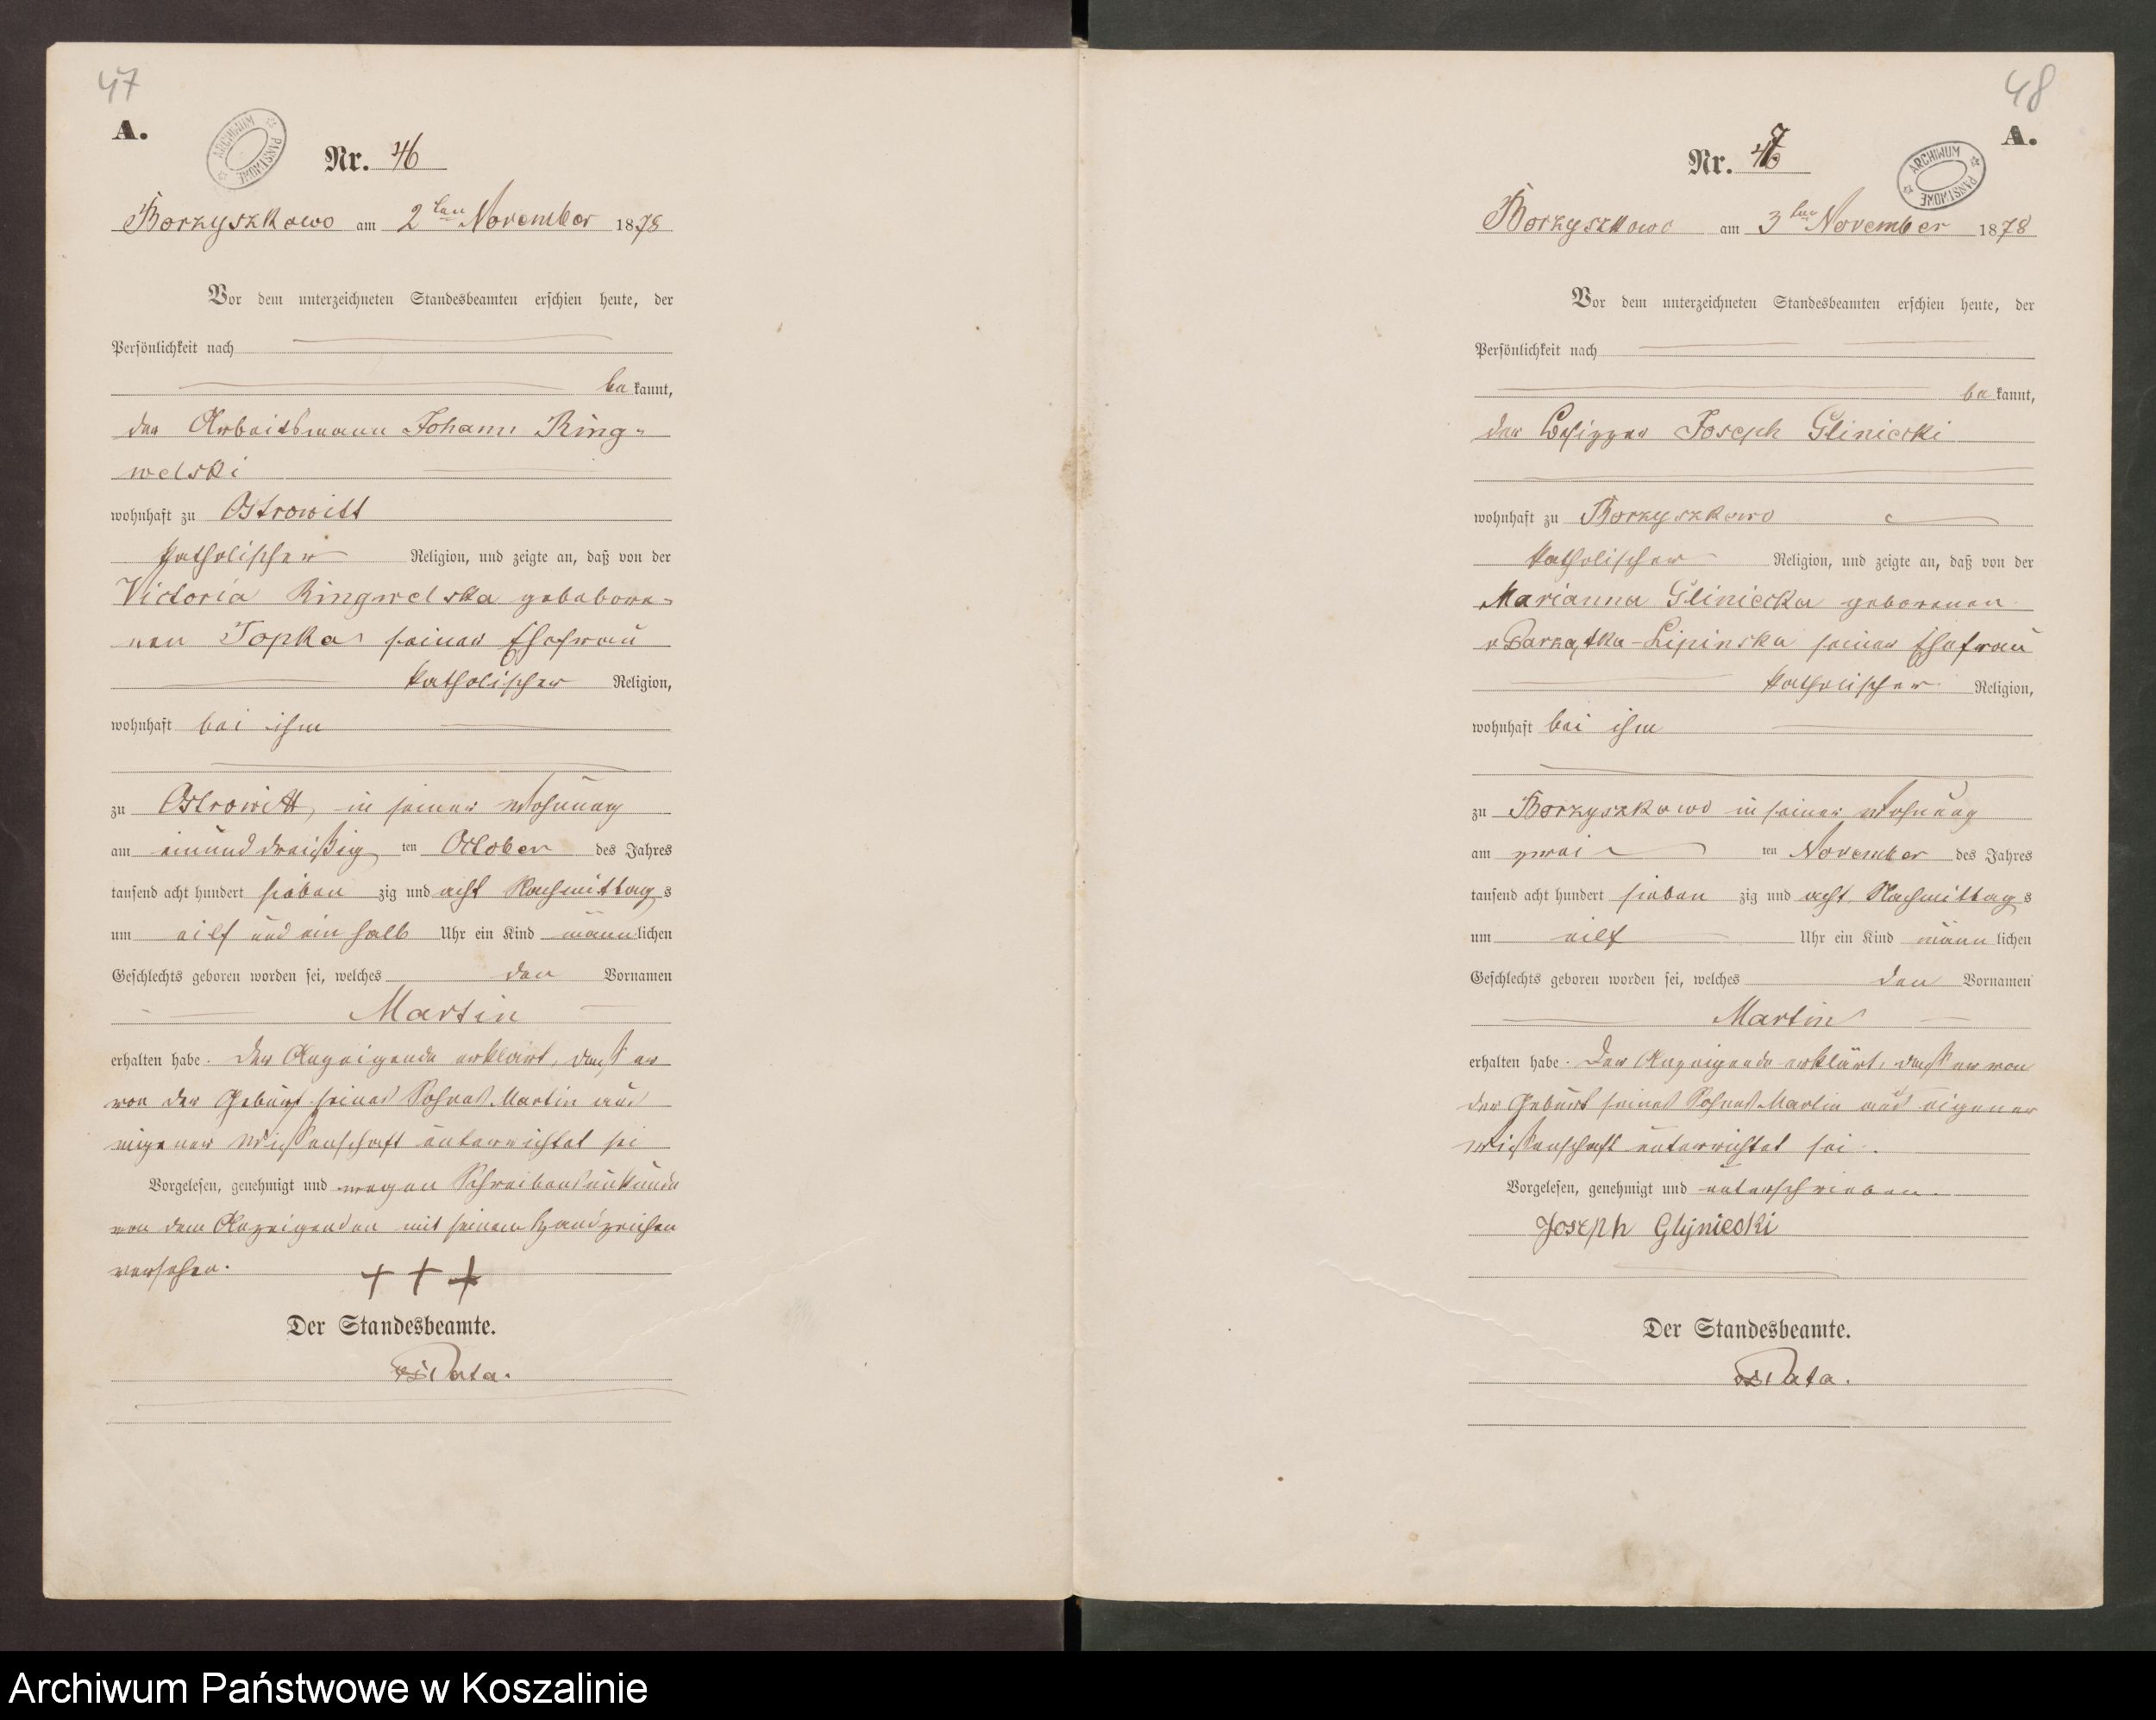 47
A.
ARCHIWUM PAŃSTWOWE
Nr. 46
Borzyszkowo am 2ten November 1878
Vor dem unterzeichneten Standesbeamten erschien heute, der
Persönlichkeit nach
be kannt,
der Arbeitsmann Johann Ring-
welski
wohnhaft zu Ostrowitt
katholischer Religion, und zeigte an, daß von der
Victoria Ringwelska gebabore-
nen Topka seiner Ehefrau
katholischer Religion,
wohnhaft bei ihm
zu Ostrowitt, in seiner Wohnung
am einunddreißig ten October des Jahres
tausend acht hundert sieben zig und acht Nachmittag s
um eilf und ein halb Uhr ein Kind männ lichen
Geschlechts geboren worden sei, welches den Vornamen
Martin
erhalten habe. Der Anzeigende erklärt, daß er
von der Geburt seines Sohnes Martin aus
eigener Wißenschaft unterrichtet sei
Vorgelesen, genehmigt und wegen Schreibensunkunde
von dem Anzeigenden mit seinem Handzeichen
versehen. + + +
Der Standesbeamte.
Pata.
48
A.
ARCHIWUM PAŃSTWOWE
Nr. 47
Borzyszkowo am 3ten November 1878
Vor dem unterzeichneten Standesbeamten erschien heute, der
Persönlichkeit nach
be kannt,
der Besitzer Joseph Gliniecki
wohnhaft zu Borzyszkowo
katholischer Religion, und zeigte an, daß von der
Marianna Gliniecka geborenen
v Parzątka-Lipinska seiner Ehefrau
katholischer Religion,
wohnhaft bei ihm
zu Borzyszkowo in seiner Wohnung
am zwei ten November des Jahres
tausend acht hundert sieben zig und acht Nachmittag s
um eilf Uhr ein Kind männ lichen
Geschlechts geboren worden sei, welches den Vornamen
Martin
erhalten habe. Der Anzeigende erklärt, daß er von
der Geburt seines Sohnes Martin aus eigener
Wißenschaft unterrichtet sei.
Vorgelesen, genehmigt und unterschrieben.
Joseph Glyniecki
Der Standesbeamte.
Pata.
Archiwum Państwowe w Koszalinie